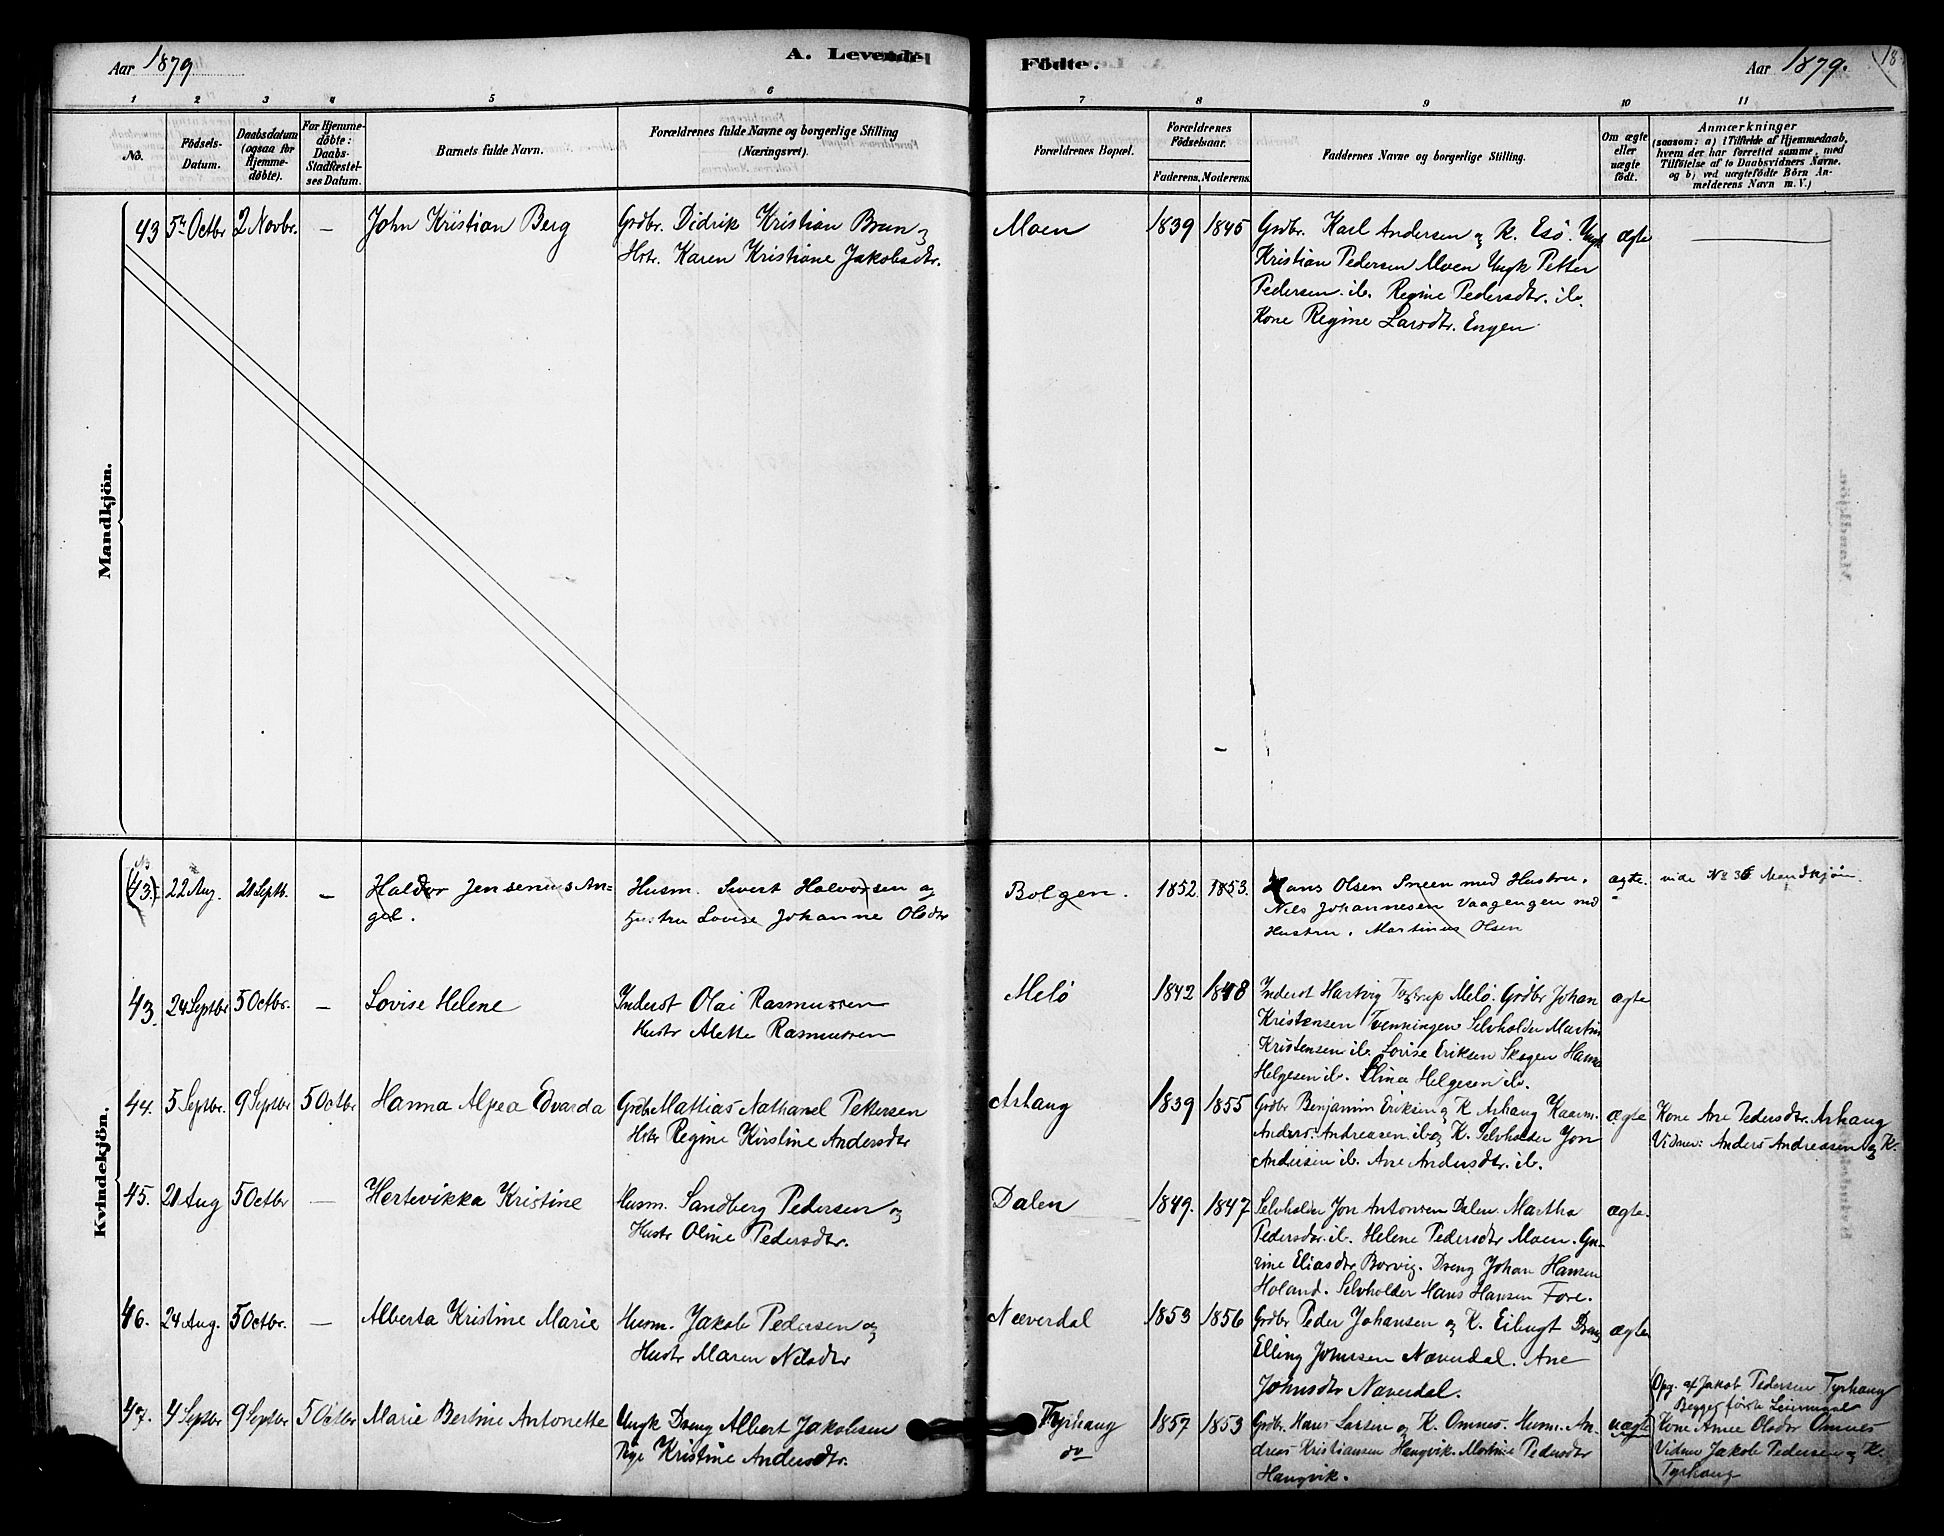 Aar 1879
A. Levendel
Födte.
Aar 1879.
18
1 2 3 4 5 6 7 8 9 10 11
No.
Födsels-
Datum.
Daabsdatum
(ogsaa for
Hjemme-
døbte).
For Hjemme-
døbte:
Daabs-
Stadfæstel-
ses Datum.
Barnets fulde Navn.
Forældrenes fulde Navne og borgerlige Stilling
(Næringsvei).
Forældrenes Bopæl.
Forældrenes
Födselsaar.
Faderens. Moderens.
Faddernes Navne og borgerlige Stilling.
Om ægte
eller
uægte
födt.
Anmærkninger
(saasom: a) i Tilfælde af Hjemmedaab,
hvem der har forrettet samme, med
Tilföielse af to Daabsvidners Navne.
og b) ved uægtefödte Börn An-
melderens Navn m. V.)
Mandkjön.
43 5te Octbr 2 Novbr. — John Kristian Berg
Grdbr. Didrik Kristian Brun og
Hstr. Karen Kristiane Jakobsdtr.
Moen 1839 1845
Grdbr. Karl Andersen og K. Esø. Ungk
Kristian Pedersen Moen Ungk Petter
Pedersen ib. Regine Pedersdtr. ib.
Kone Regine Larsdtr. Engen
ægte
Kvindekjön.
(43.) 22 Aug. 21 Septb. — Haldor Jensenius An-
gel.
Husm. Sivert Halvorsen og
Hustru Lovise Johanne Olsdtr
Bolgen. 1852 1853.
Hans Olsen Sneen med Hustru.
Niels Johannesen Vaagengen med
Hustru. Martinus Olsen
ægte. vide No 36 Mandkjön.
43. 24 Septbr 5 Octbr. — Lovise Helene
Inderst Olai Rasmussen
Hustr Alette Rasmussen
Melö 1842 1848
Inderst Hartvig Tostrup Melö. Grdbr Johan
Kristensen Tvenningen Selvholder Martin
Kristensen ib. Lovise Eriksen Skogen Hanna
Helgesen ib. Elina Helgesen ib.
ægte
44. 5 Septbr. 9 Septbr 5 Octbr Hanna Alpea Edvarda
Grdbr Mattias Nathanel Pettersen
Hstr Regine Kirstine Andersdtr
Arhaug 1839 1855
Grdbr Benjamin Eriksen og K. Arhaug Kaarm.
Anders Andreasen ib og K. Selvholder Jon
Andersen ib. Ane Andersdtr. ib.
ægte
Kone Ane Pedersdtr. Arhaug
Vidner: Anders Andreasen og K.
45. 21 Aug 5 Octbr — Hertevikka Kristine
Husm. Sandberg Pedersen og
Hustr Oline Pedersdtr.
Dalen 1849. 1847
Selvholder Jon Antonsen Dalen. Martha
Pedersdtr. ib. Helene Pedersdtr Moen. Gu-
rine Eliasdtr Borvig. Dreng Johan Hansen
Holand. Selvholder Hans Hansen Fore.
ægte.
46. 24 Aug. 5 Octbr. — Alberta Kristine Marie
Husm. Jakob Pedersen og
Hustr Maren Nilsdtr
Næverdal 1853 1856
Grdbr Peder Johansen og K. Eilingt Dreng
Elling Johnsen Næverdal. Ane
Johnsdtr Næverdal.
ægte
47. 4 Septbr 9 Septbr 5 Octbr Marie Bertine Antonette
Ungk Dreng Albert Jakobsen
Pige Kristine Andersdtr.
Tyrhaug 1857 1853
do
Grdbr. Hans Larsen og K. Omnes. Husm. An-
dreas Kristiansen Haugvik. Martine Pedersdtr
Haugvik.
uægte
Opg. af Jakob Pedersen Tyrhaug
Begges förste Leiermaal
Kone Anne Olsdtr Omnes
Vidner Jakob Pedersen og K.
Tyrhaug